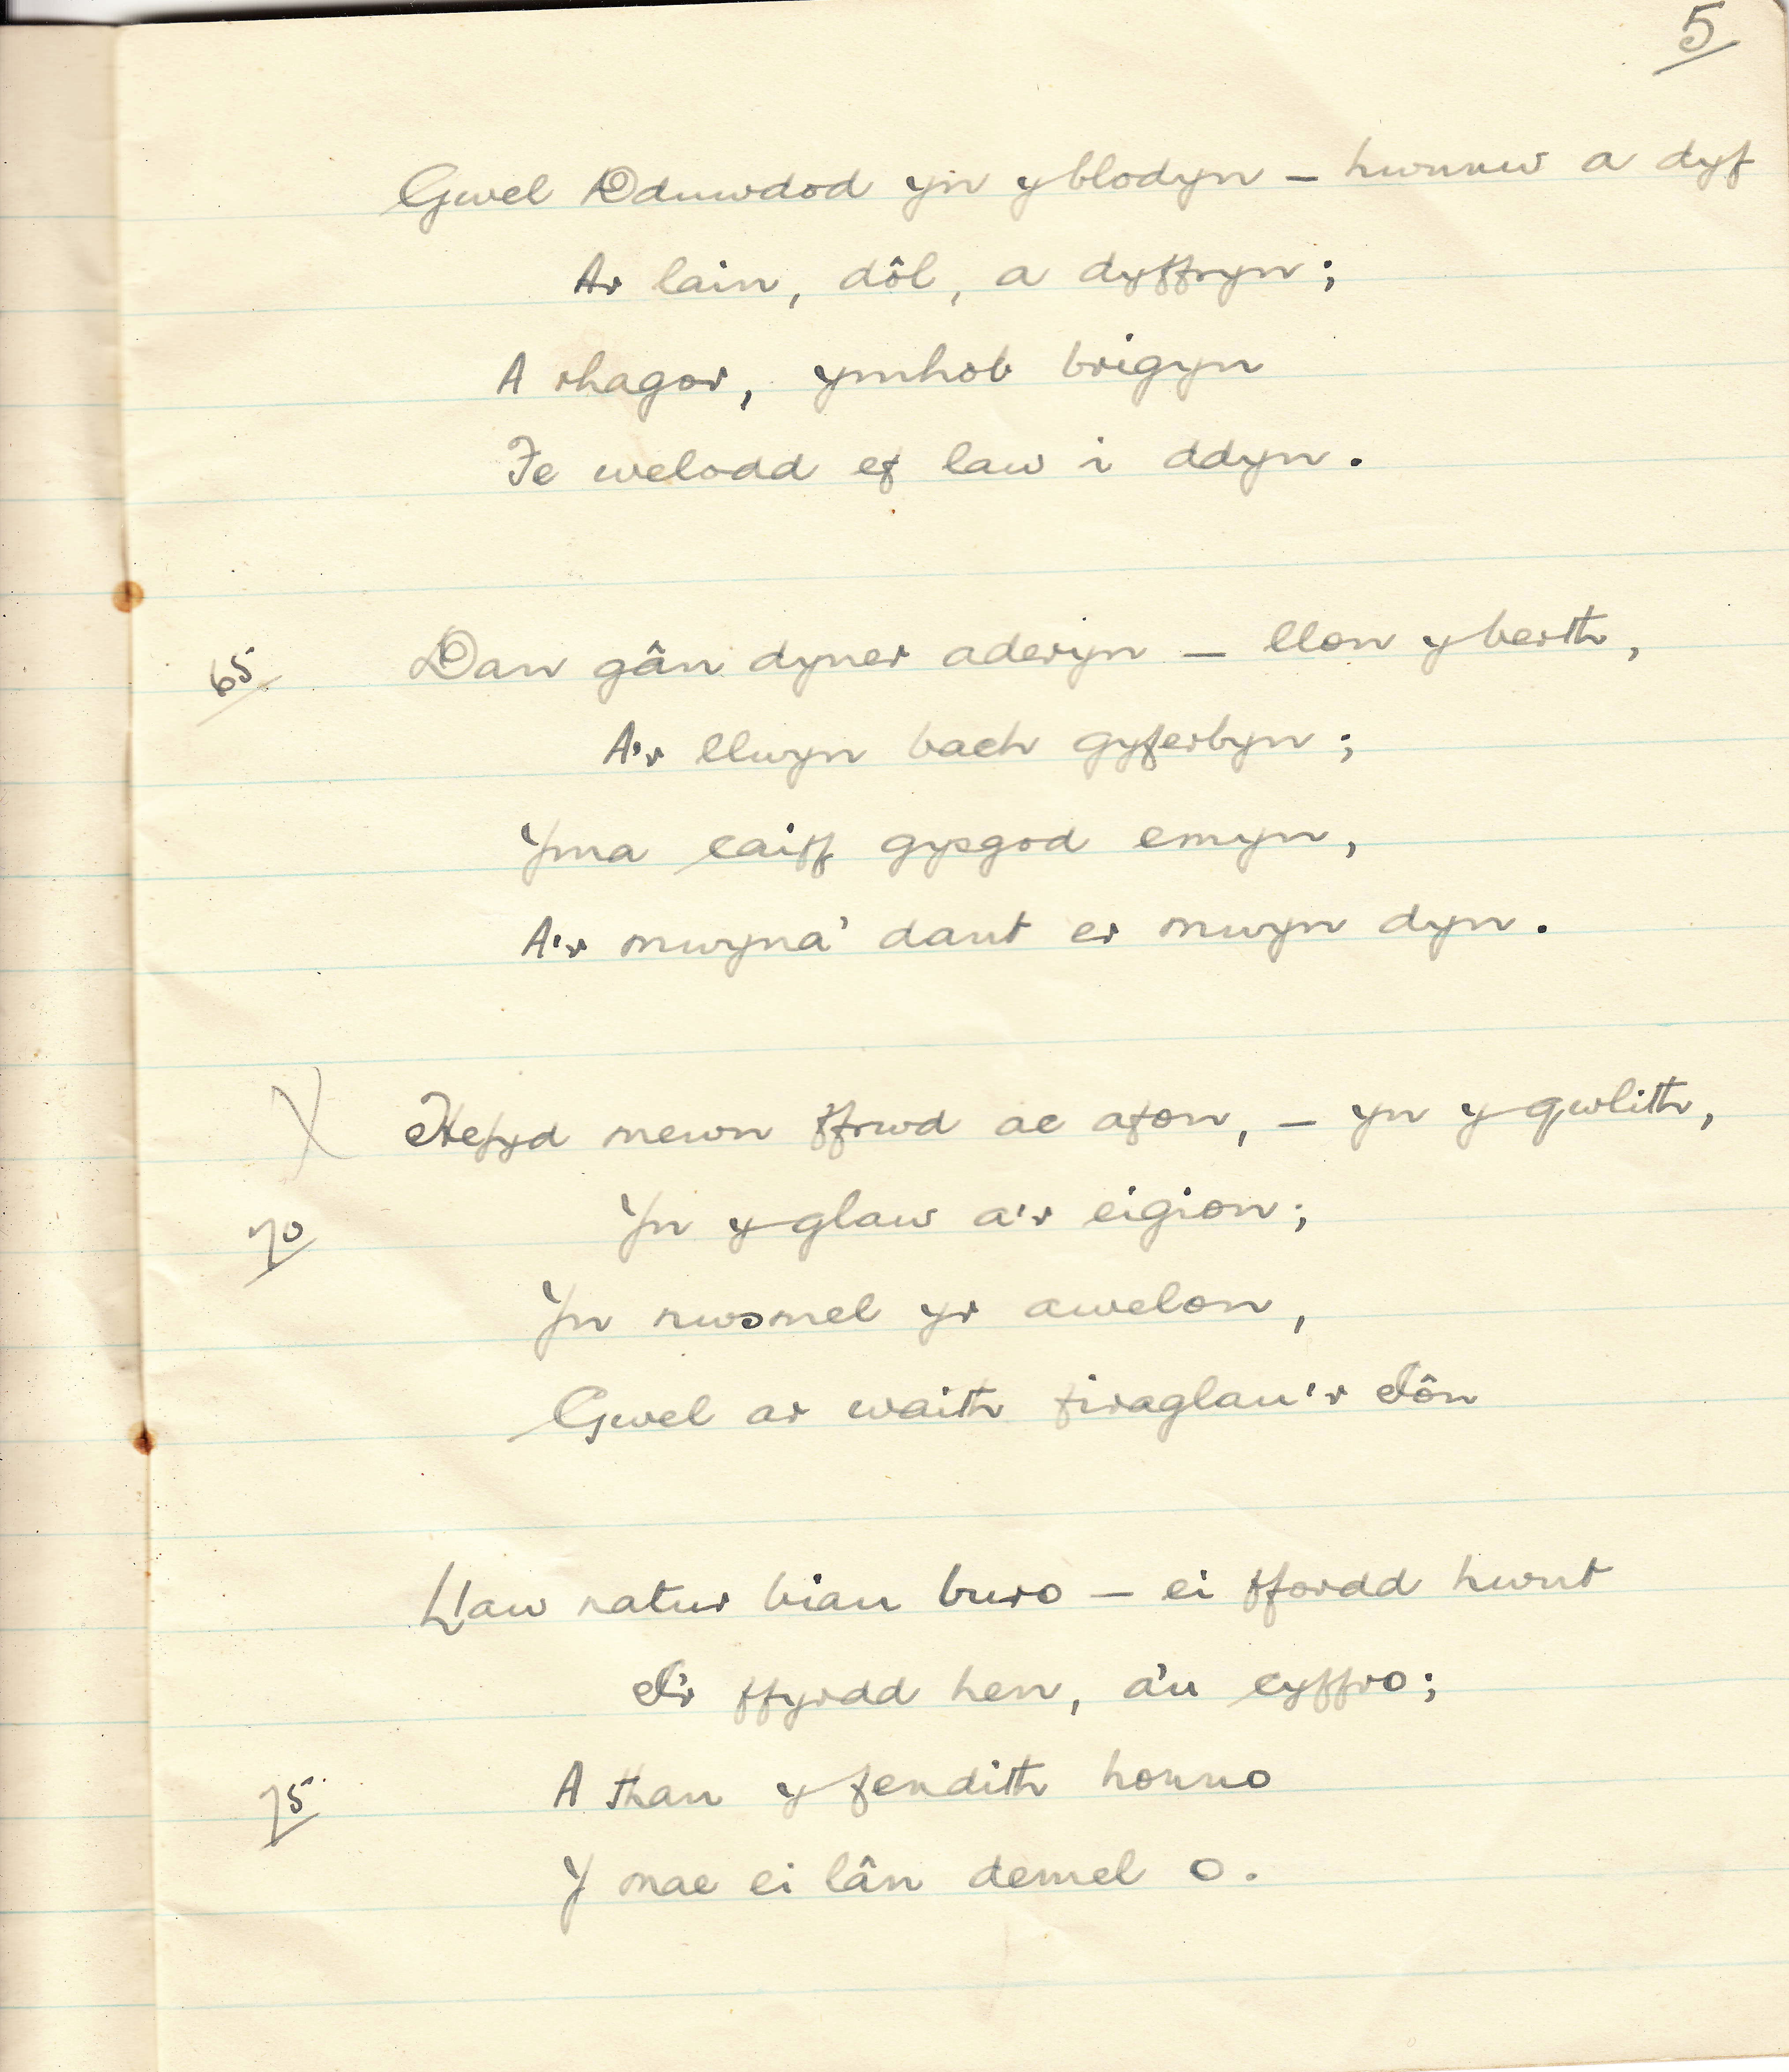 5
Gwel Dduwdod yn y blodyn – hwnnw a dyf
Ar lain, dôl, a dyffryn;
A rhagor, ymhob brigyn
Fe welodd ef law i ddyn.
65 Dan gân dyner aderyn – llon y berth,
A'r llwyn bach gyferbyn;
Yma caiff gysgod emyn,
A'r mwyna' dant er mwyn dyn.
X Hefyd mewn ffrwd ac afon, – yn y gwlith,
70 Yn y glaw a'r eigion;
Yn nwsmel yr awelon,
Gwel ar waith firaglau'r Iôn
Llaw natur biau buro – ei ffordd hwnt
I'r ffyrdd hen, a'u cyffro;
75 A than y fendith honno
Y mae ei lân demel o.